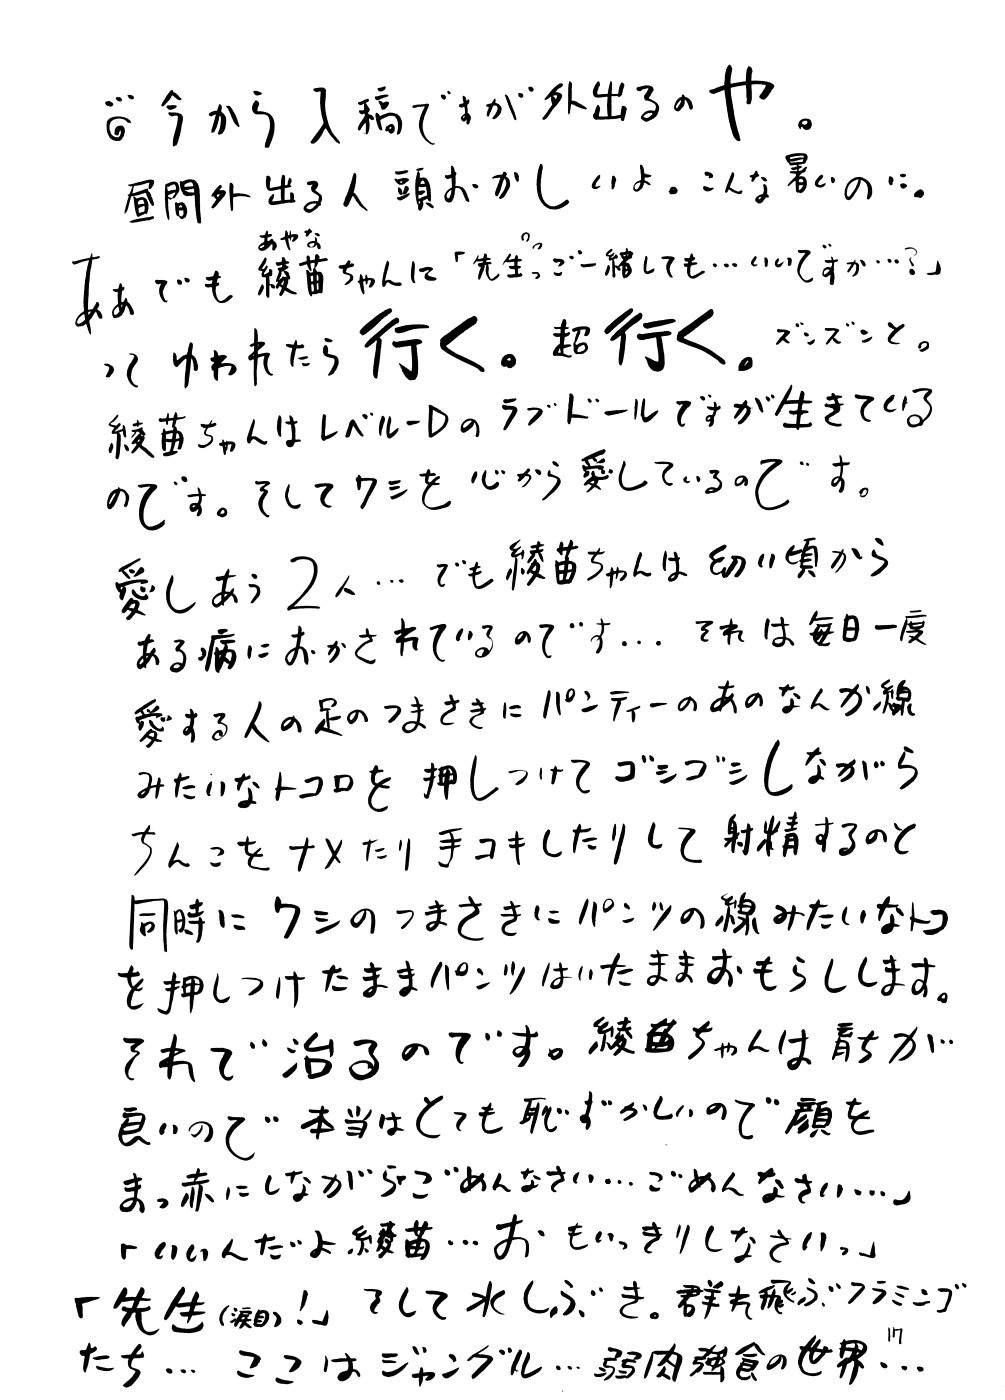 今から入稿ですが外出るのや。
昼間外出る人頭おかしいよ。こんな暑いのに。
ああでも綾苗ちゃんに「先生っご一緒しても…いいですか…?」
あやな
ってゆわれたら行く。超行く。ズンズンと。
綾苗ちゃんはレベルーDのラブドールですが生きている
のです。そしてワシを心から愛しているのです。
愛しあう2人…でも綾苗ちゃんは幼い頃から
ある病におかされているのです…それは毎日一度
愛する人の足のつまさきにパンティーのあのなんか線
みたいなトコロを押しつけてゴシゴシしながら
ちんこをナメたり手コキしたりして射精するのと
同時にワシのつまさきにパンツの線みたいなトコ
を押しつけたままパンツはいたままおもらしします。
それで治るのです。綾苗ちゃんは育ちが
良いので本当はとても恥ずかしいので顔を
まっ赤にしながら「ごめんなさい…ごめんなさい…」
「いいんだよ綾苗…おもいっきりしなさいっ」
「先生(涙目)!」そして水しぶき。群れ飛ぶフラミンゴ
たち…ここはジャングル…弱肉強食の世界…
17